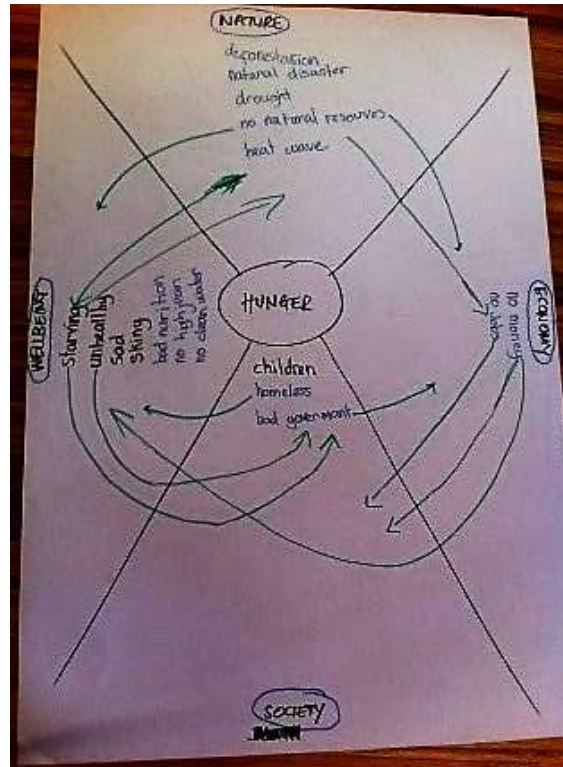 NATURE
deforestasion
natural disaster
drought
no natural resourves
heat wave
WELLBEING
Starving
unhealthy
Sad
Sking
bad nurition
no high gean
no clean water
HUNGER
no money
no Jobs
ECONOMY
children
homeless
bad goverment
SOCIETY